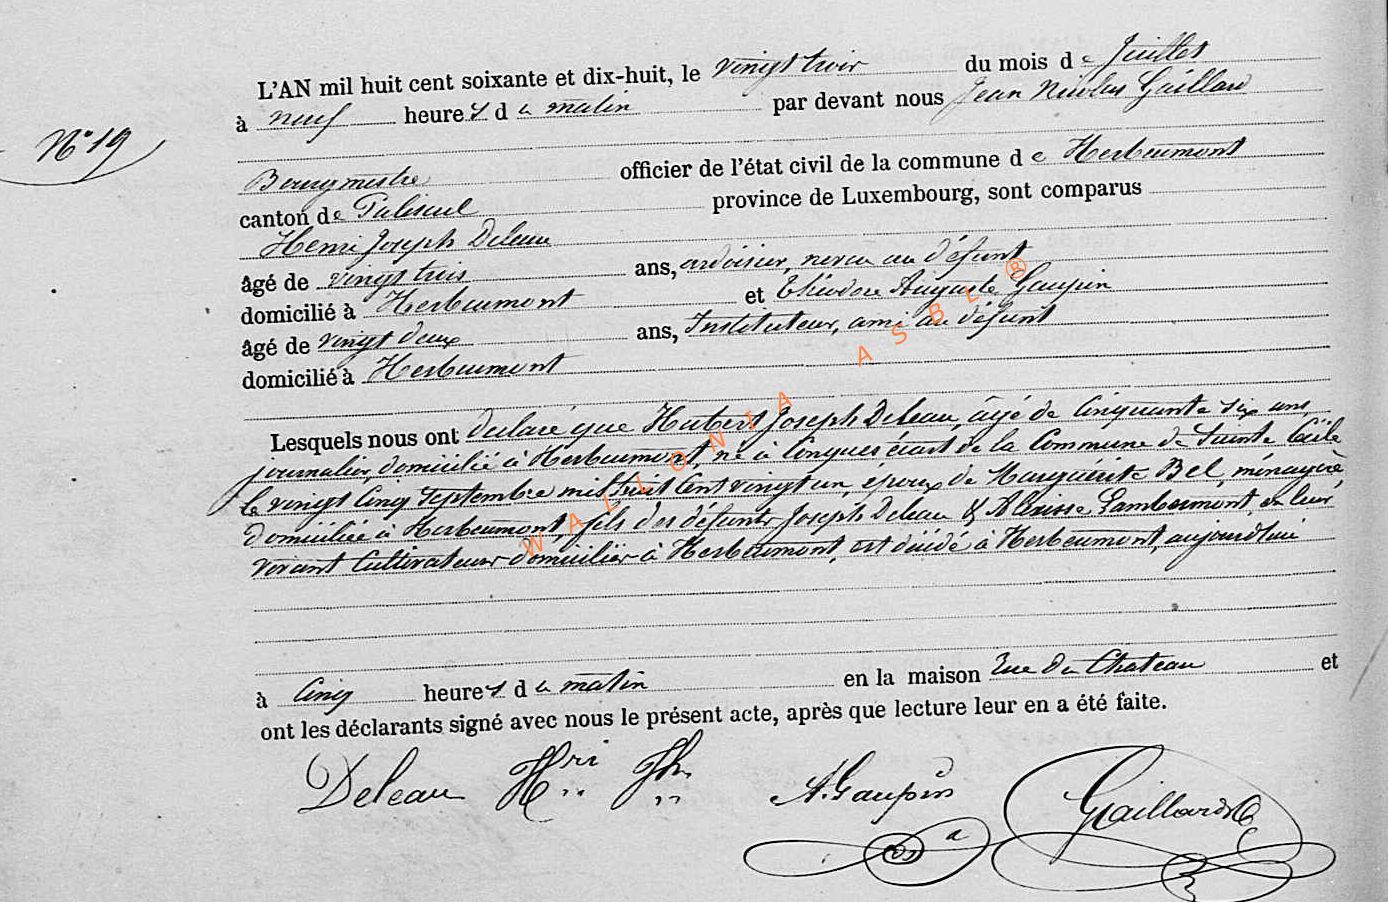 L'AN mil huit cent soixante et dix-huit, le vingt trois du mois de Juillet
à neuf heures du matin par devant nous Jean Nicolas Gaillard
N° 19
Bourgmestre officier de l'état civil de la commune de Herbeumont
canton de Paliseul province de Luxembourg, sont comparus
Henri Joseph Deleau
âgé de vingt trois ans, ardoisier, neveu au défunt
domicilié à Herbeumont et Théodore Auguste Gaupin
âgé de vingt deux ans, Instituteur, ami au défunt
domicilié à Herbeumont
Lesquels nous ont déclaré que Hubert Joseph Deleau, âgé de Cinquante six ans,
journalier, domicilié à Herbeumont, né à Conques écart de la Commune de Sainte Cécile
le vingt Cinq Septembre mil huit Cent vingt un, époux de Marguérite Bel, ménagère
domiciliée à Herbeumont, fils des défunts Joseph Deleau & Lambermont, en leur
vivant Cultivateurs domiciliés à Herbeumont, est décédé à Herbeumont, aujourd'hui
à Cinq heures du matin en la maison Rue du Chateau et
ont les déclarants signé avec nous le présent acte, après que lecture leur en a été faite.
Deleau Hri Jh A. Gaupin Gaillard
WALLONIA ASBL ®